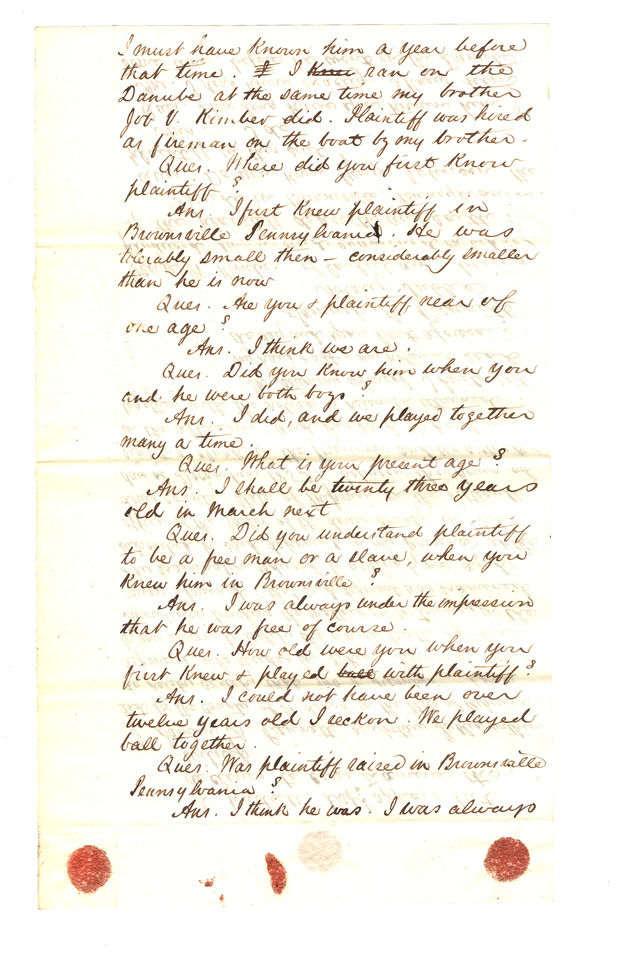 I must have known him a year before
that time. I I knew ran on the
Danube at the same time my brother
Job V. Kimber did. Plaintiff was hired
as fireman on the boat by my brother.
Ques. Where did you first know
plaintiff?
Ans. I first knew plaintiff in
Brownsville Pennsylvania. He was
tolerably small then – considerably smaller
than he is now
Ques. Are you & plaintiff near of
one age?
Ans. I think we are.
Ques. Did you know him when you
and he were both boys?
Ans. I did, and we played together
many a time.
Ques. What is your present age?
Ans. I shall be twenty three years
old in March next
Ques. Did you understand plaintiff
to be a free man or a slave, when you
knew him in Brownsville?
Ans. I was always under the impression
that he was free of course.
Ques. How old were you when you
first knew & played ball with plaintiff?
Ans. I could not have been over
twelve years old I reckon. We played
ball together.
Ques. Was plaintiff raised in Brownsville
Pennsylvania?
Ans. I think he was. I was always